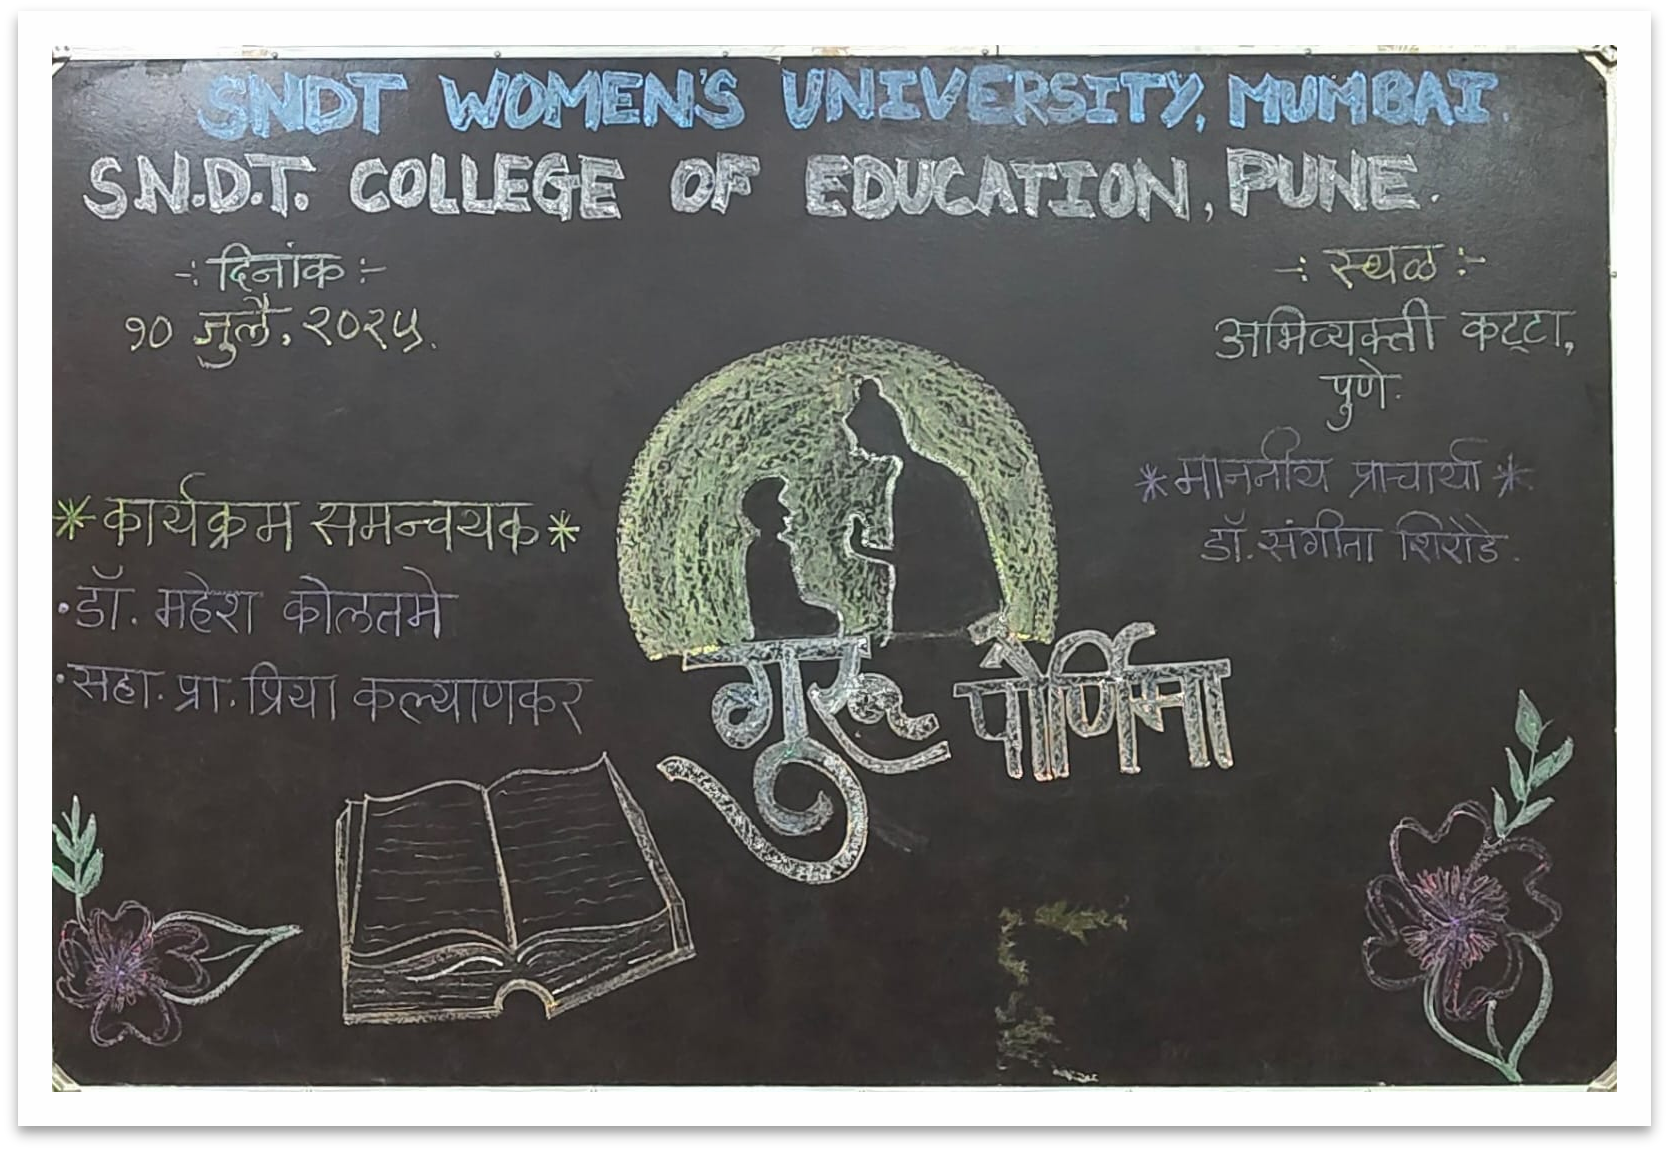 SNDT WOMEN'S UNIVERSITY, MUMBAI.
S.N.D.T. COLLEGE OF EDUCATION, PUNE.
-: दिनांक :-
१० जुलै, २०२५.
-: स्थळ :-
अभिव्यक्ती कट्टा,
पुणे.
* माननीय प्राचार्या *
डॉ. संगीता शिरोडे.
* कार्यक्रम समन्वयक *
• डॉ. महेश कोलतमे
• सहा. प्रा. प्रिया कल्याणकर
गुरू पौर्णिमा